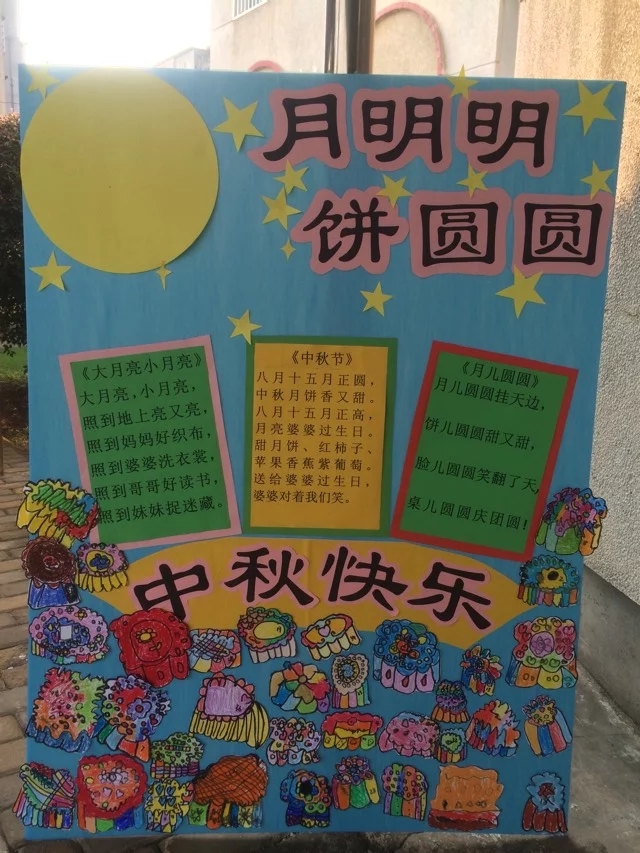 月明明
饼圆圆
《大月亮小月亮》
大月亮,小月亮,
照到地上亮又亮,
照到妈妈好织布,
照到婆婆洗衣裳,
照到哥哥好读书,
照到妹妹捉迷藏。
《中秋节》
八月十五月正圆,
中秋月饼香又甜。
八月十五月正高,
月亮婆婆过生日。
甜月饼、红柿子、
苹果香蕉紫葡萄。
送给婆婆过生日,
婆婆对着我们笑。
《月儿圆圆》
月儿圆圆挂天边,
饼儿圆圆甜又甜,
脸儿圆圆笑翻了天,
桌儿圆圆庆团圆!
中秋快乐